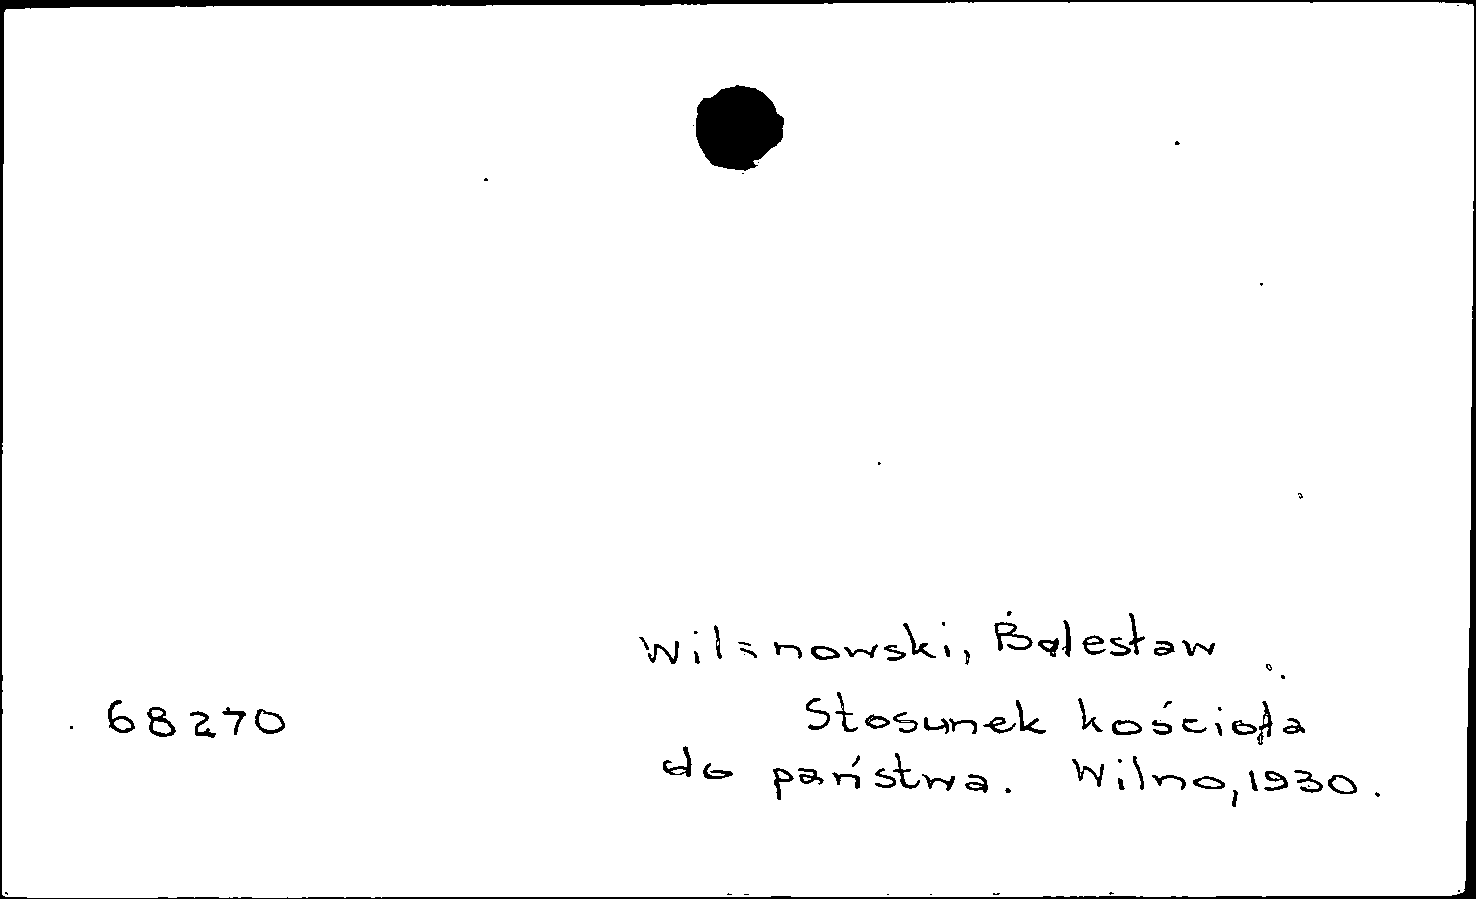 Wilanowski, Bolesław
68270 Stosunek kościoła
do państwa. Wilno, 1930.